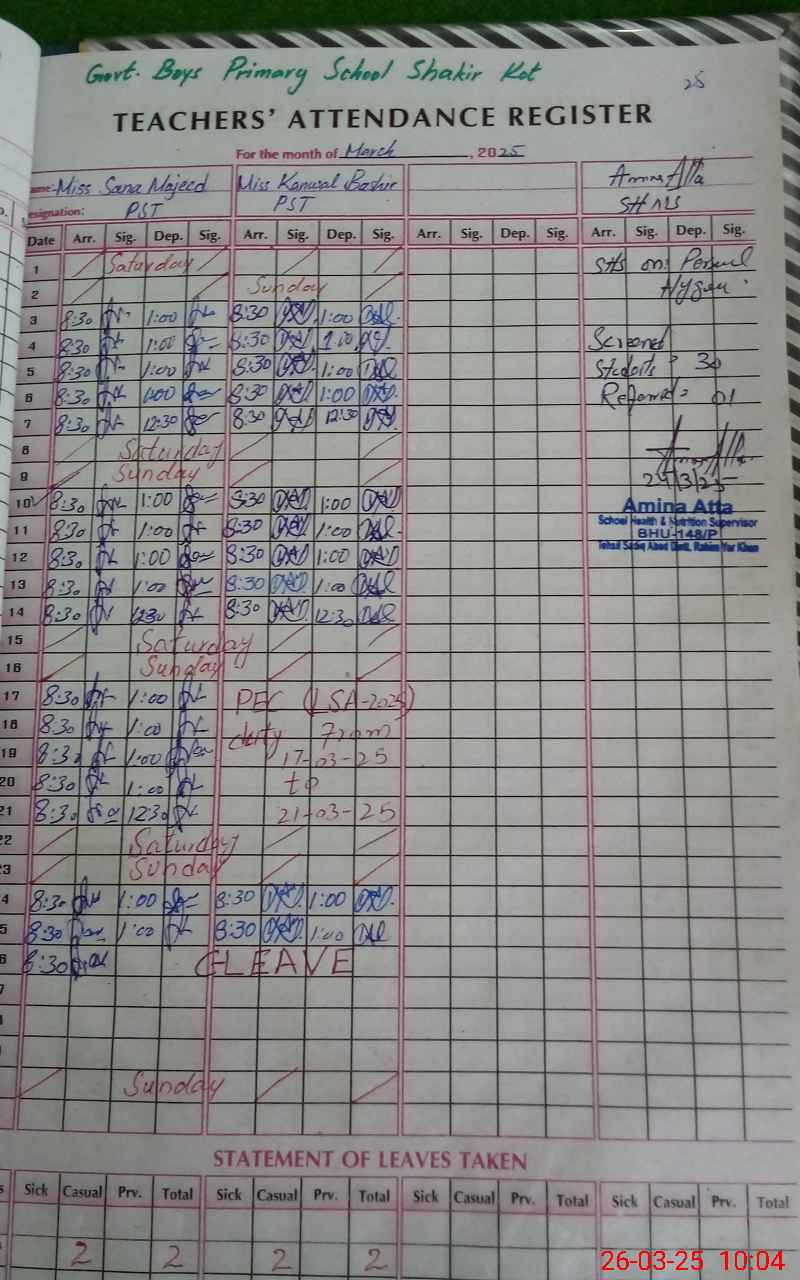 Govt. Boys Primary School Shakir Kot
25
TEACHERS' ATTENDANCE REGISTER
For the month of March, 2025
Name: Miss Sana Majeed Miss Kanwal Bashir Amina Atta
Designation: PST PST SH NS
Date Arr. Sig. Dep. Sig. Arr. Sig. Dep. Sig. Arr. Sig. Dep. Sig. Arr. Sig. Dep. Sig.
1 Saturday on
2 Sunday
3 8:30 1:00 8:30 1:00
4 8:30 1:00 8:30 1:00 Screened
5 8:30 1:00 8:30 1:00 Students = 30
6 8:30 1:00 8:30 1:00 Referred = 01
7 8:30 12:30 8:30 12:30
8 Saturday
9 Sunday 24/3/25
10 8:30 1:00 8:30 1:00 Amina Atta
11 8:30 1:00 8:30 1:00 School Health & Nutrition Supervisor
BHU-148/P
12 8:30 1:00 8:30 1:00 Tehsil Sadiq Abad Distt. Rahim Yar Khan
13 8:30 1:00 8:30 1:00
14 8:30 12:30 8:30 12:30
15 Saturday
16 Sunday
17 8:30 1:00 PEC (LSA-2025)
18 8:30 1:00 duty From
19 8:30 1:00 17-03-25
20 8:30 1:00 to
21 8:30 12:30 21-03-25
22 Saturday
3 Sunday
4 8:30 1:00 8:30 1:00
5 8:30 1:00 8:30 1:00
6 8:30 C-LEAVE
7
Sunday
STATEMENT OF LEAVES TAKEN
Sick Casual Prv. Total Sick Casual Prv. Total Sick Casual Prv. Total Sick Casual Prv. Total
2 2 2 2
26-03-25 10:04